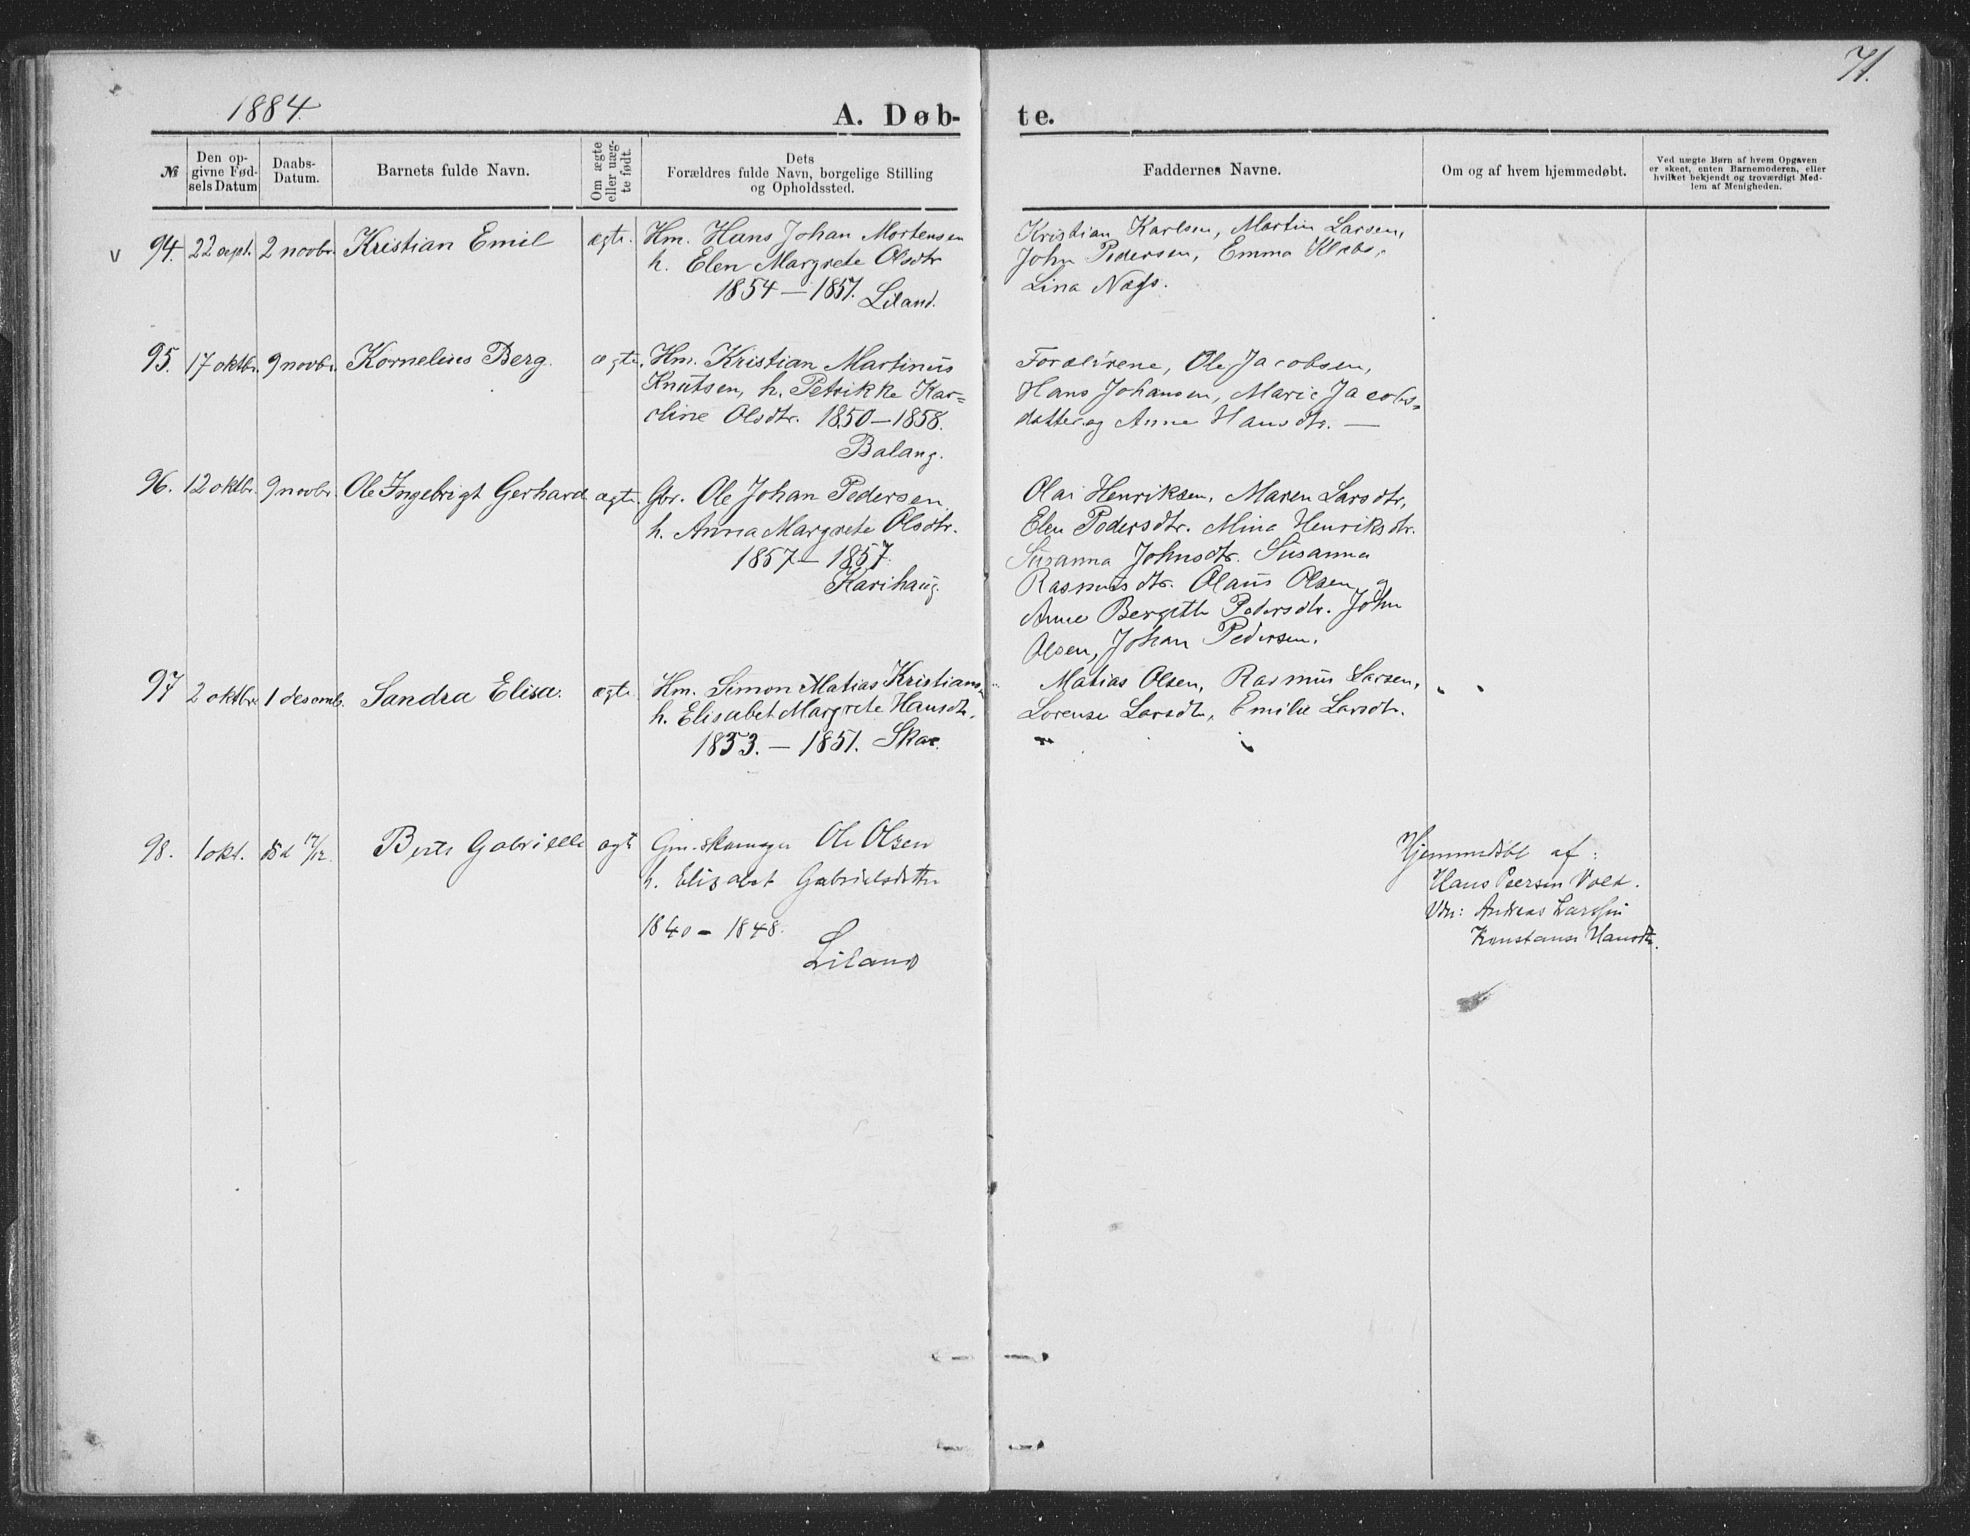 71.
1884.
A. Døb-
te.
№
Den op-
givne Fød-
sels Datum
Daabs-
Datum.
Barnets fulde Navn.
Om ægte
eller uæg-
te født.
Dets
Forældres fulde Navn, borgelige Stilling
og Opholdssted.
Faddernes Navne.
Om og af hvem hjemmedøbt.
Ved uægte Børn af hvem Opgaven
er skeet, enten Barnemoderen, eller
hvilket bekjendt og troværdigt Med-
lem af Menigheden.
v 94. 22 sept. 2 novbr. Kristian Emil ægte. Hm. Hans Johan Mortensen
h. Elen Margrete Olsdtr
1854 – 1857. Liland.
Kristian Karlsen, Martin Larsen,
John Pedersen, Emma Klæbo,
Lina
95. 17 oktbr. 9 novbr. Kornelius Berg. ægte. Hm. Kristian Martinus
Knutsen, h. Petrikke Kar=
oline Olsdtr. 1850 – 1858.
Balang.
Forældrene, Ole Jacobsen,
Hans Johansen, Marie Jacobs=
datter og Anne Hansdtr. —
96. 12 oktbr. 9 novbr. Ole Ingebrigt Gerhard ægte. Gbr. Ole Johan Pedersen
h. Anna Margrete Olsdtr.
1857 – 1857.
Karihaug.
Olai Henriksen, Maren Larsdtr,
Elen Pedersdtr. Mina Henriksdtr.
Susanna Johnsdtr. Susanna
Rasmusdtr. Olaus Olsen,
Anne Bergitte Pedersdtr. John
Olsen, Johan Pedersen.
97 2 oktbr. 1 desemb. Sandra Elisa. ægte. Hm. Simon Matias Kristians
h. Elisabet Margrete Hansdtr.
1853. – 1851. Skar.
Matias Olsen, Rasmus Larsen,
Lorense Larsdtr, Emilie Larsdtr.
98. 1 okt. død 17/12. Berte Gabrielle ægte Gm. skomager Ole Olsen
h. Elisabet Gabrielsdatter
1840 – 1848.
Liland
Hjemmedøbt af:
Hans Peersen Vold.
Vdn: Andreas Larssen
Konstanse Hansdtr.